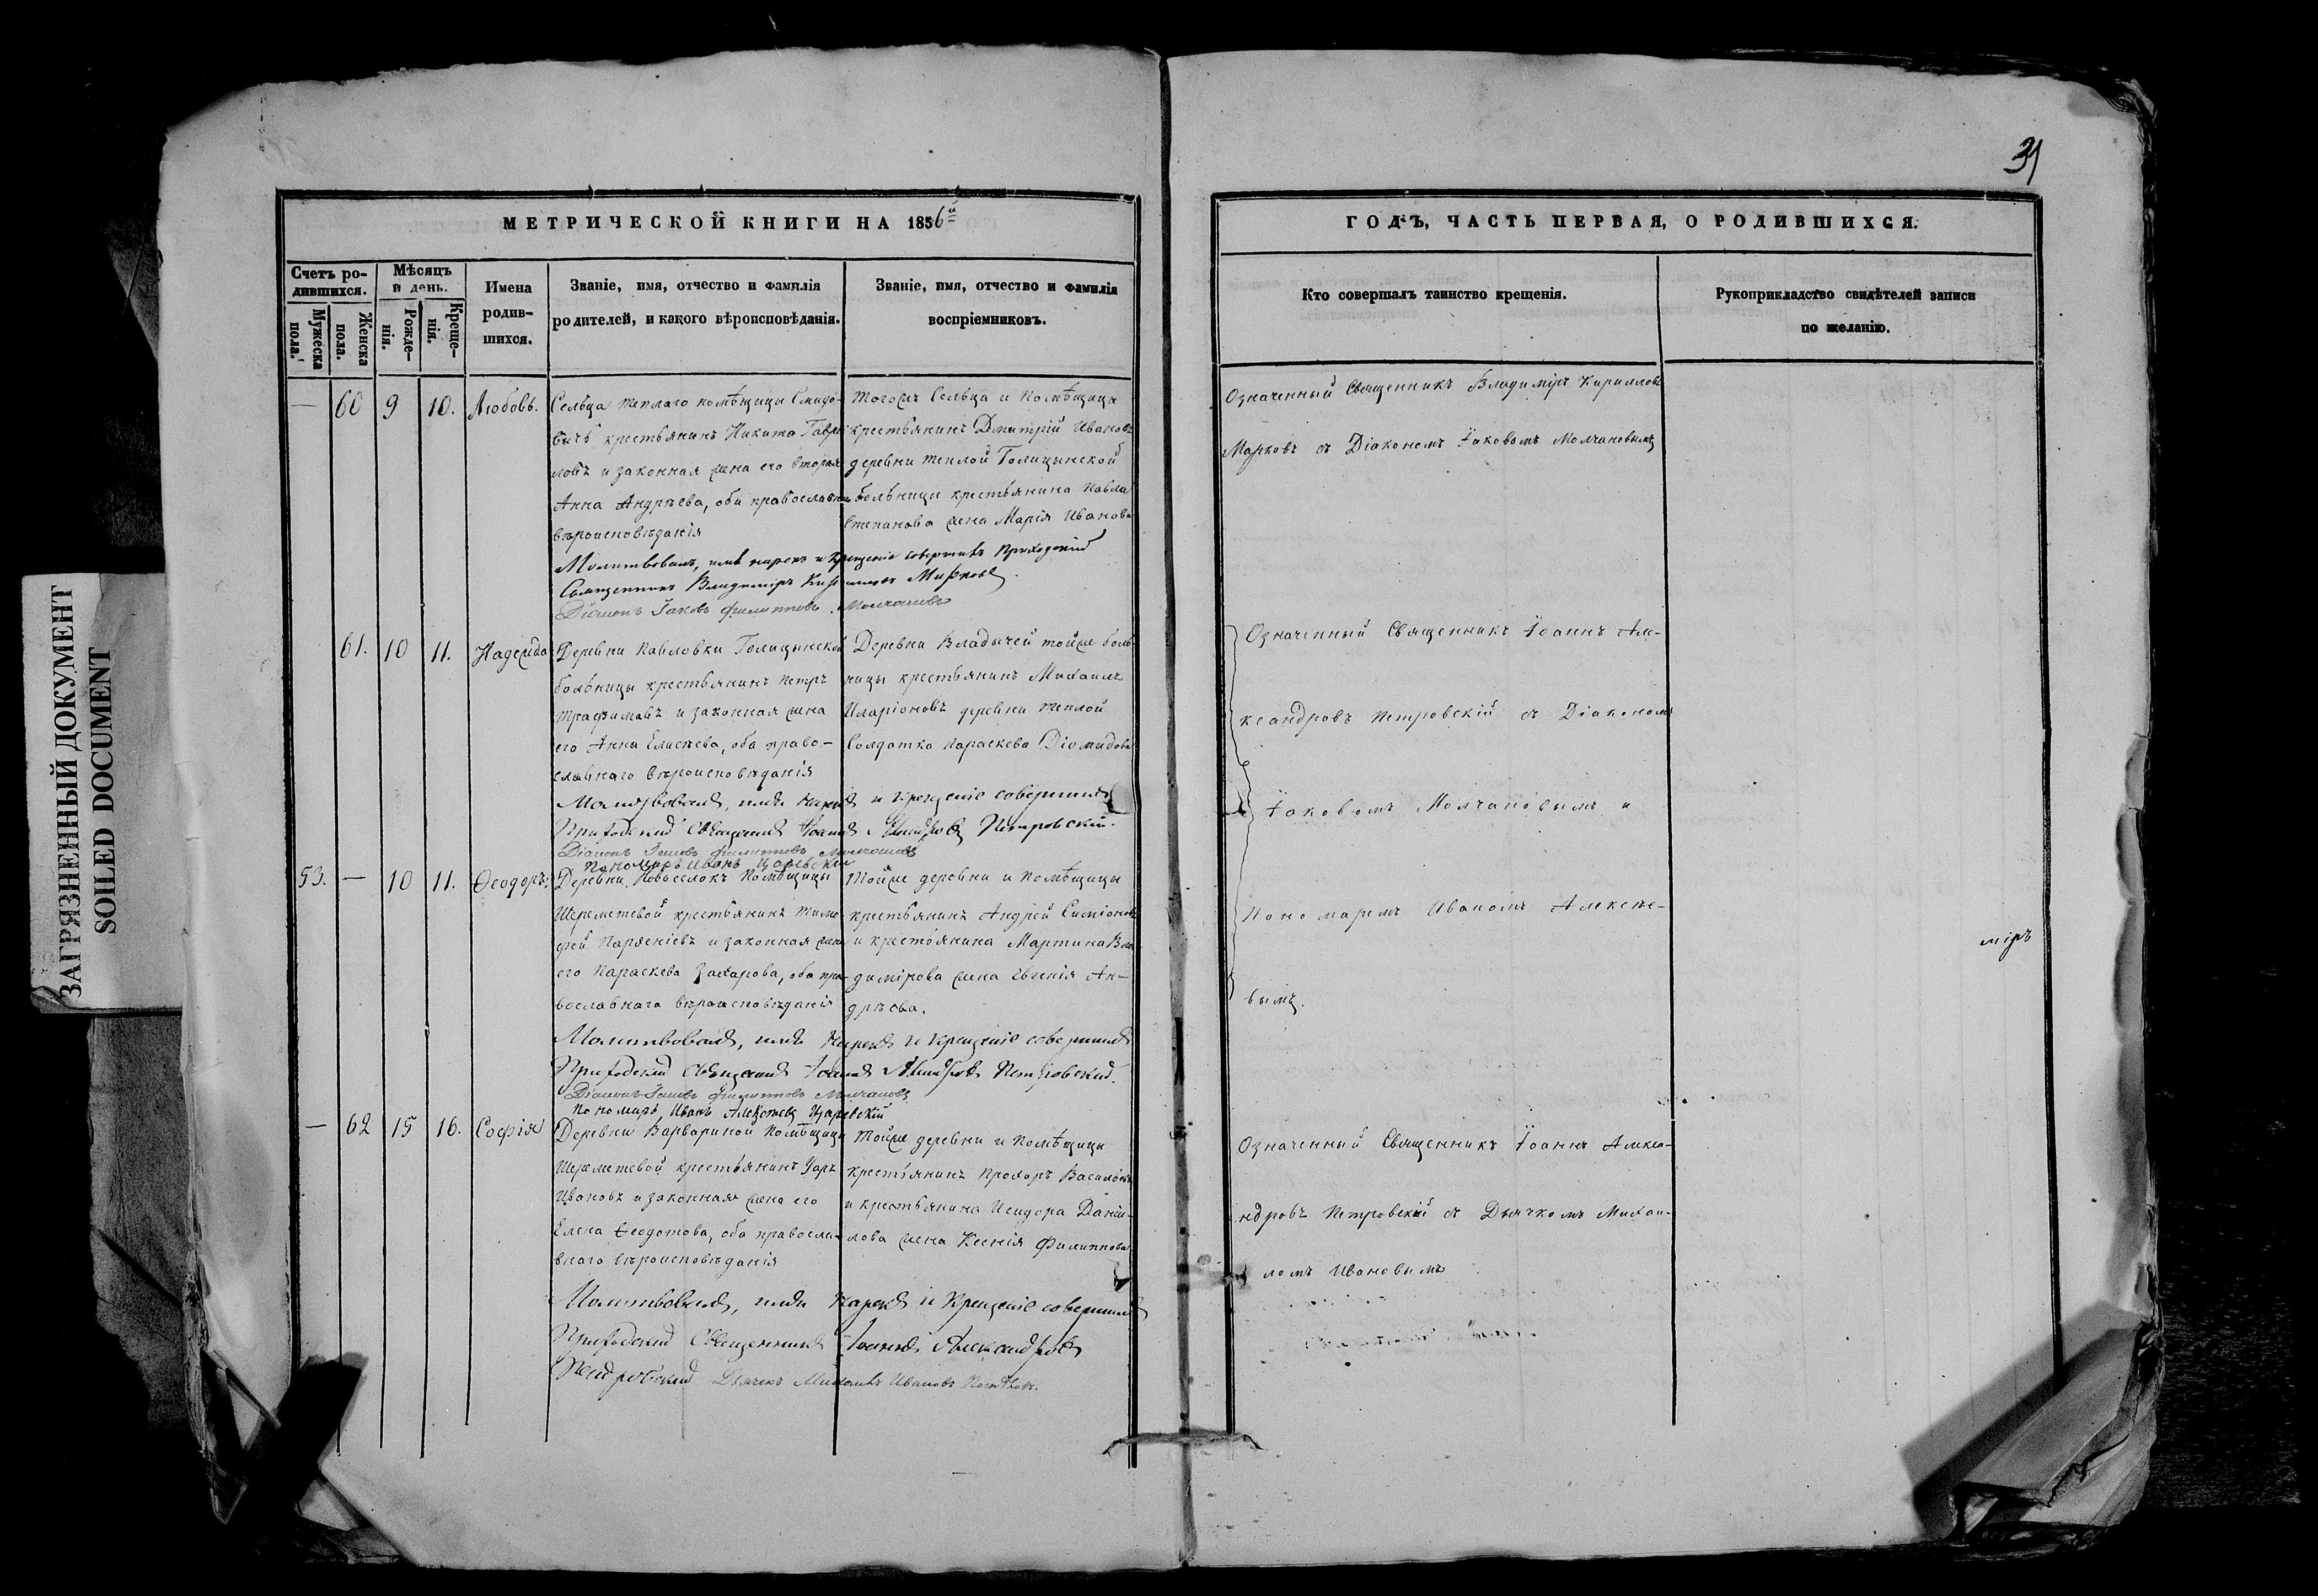 31
МЕТРИЧЕСКОЙ КНИГИ НА 1856й
ГОДЪ, ЧАСТЬ ПЕРВАЯ, О РОДИВШИХСЯ.
Счетъ ро-
дившихся.
Мужеска
пола.
Женска
пола.
Мѣсяцъ
и день.
Рожде-
нія.
Креще-
нія.
Имена
родив-
шихся.
Званіе, имя, отчество и фамилія
родителей, и какого вѣроисповѣданія.
Званіе, имя, отчество и фамилія
воспріемниковъ.
Кто совершалъ таинство крещенія.
Рукоприкладство свидѣтелей записи
по желанію.
— 60 9 10. Любовь.
Сельца Теплаго помѣщицы
крестьянинъ Никита Гаври-
ловъ и законная жена его вторая
Анна Андрѣева, оба православнаго
вѣроисповѣданія
Тогожъ Сельца и Помѣщицы
крестьянинъ Дмитрій Ивановъ
деревни Теплой Голицынской
больницы крестьянина Павла
Степанова жена Марія Иванова
Молитвовалъ, имя нарекъ и крещеніе совершилъ Приходскій
Священникъ Владиміръ Кирилловъ Марковъ.
Діаконъ Іаковъ Филипповъ Молчановъ
Означенный Священникъ Владиміръ Кирилловъ
Марковъ съ Діакономъ Іаковомъ Молчановымъ
61. 10 11. Надежда
Деревни Павловки Голицынской
больницы крестьянинъ Петръ
Трафимовъ и законная жена
его Анна Елисѣева, оба право-
славнаго вѣроисповѣданія
Деревни Владычей тойже боль-
ницы крестьянинъ Михаилъ
Иларіоновъ деревни Теплой
Солдатка Параскева Діомидова
Молитвовалъ, имя нарекъ и крещеніе совершилъ
Приходскій Священникъ Іоаннъ Петровскій.
Діаконъ Іаковъ Филипповъ Молчановъ
Пономарь Иванъ Царевскій
Означенный Священникъ Іоаннъ Але-
ксандровъ Петровскій съ Діакономъ
Іаковомъ Молчановымъ и
Пономаремъ Иваномъ Алексѣе-
вымъ.
53. — 10 11. Ѳеодоръ.
Деревни Новоселокъ Помѣщицы
Шереметевой крестьянинъ Тимо-
фей Парѳеніевъ и законная жена
его Параскева Захарова, оба пра-
вославнаго вѣроисповѣданія
Тойже деревни и Помѣщицы
крестьянинъ Андрей Симіоновъ
и крестьянина Мартина Вла-
димірова жена Евгенія Ан-
дрѣева.
міръ
Молитвовалъ, имя нарекъ и крещеніе совершилъ
Приходскій Священникъ Іоаннъ Петровскій.
Діаконъ Іаковъ Филипповъ Молчановъ
Пономарь Иванъ Алексѣевъ Царевскій
— 62 15 16. Софія
Деревни Варвариной Помѣщицы
Шереметевой крестьянинъ
Ивановъ и законная жена его
Елена Ѳеодотова, оба правосла-
внаго вѣроисповѣданія
Тойже деревни и Помѣщицы
крестьянинъ Прохоръ Васильевъ
и крестьянина Исидора Даніи-
лова жена Ксенія Филиппова
Молитвовалъ, имя нарекъ и крещеніе совершилъ
Приходскій Священникъ Іоаннъ Александровъ
Петровскій Дьячекъ Михаилъ Ивановъ
Означенный Священникъ Іоаннъ Алекса-
ндровъ Петровскій съ Дьячкомъ Михаи-
ломъ Ивановымъ
ЗАГРЯЗНЕННЫЙ ДОКУМЕНТ
SOILED DOCUMENT